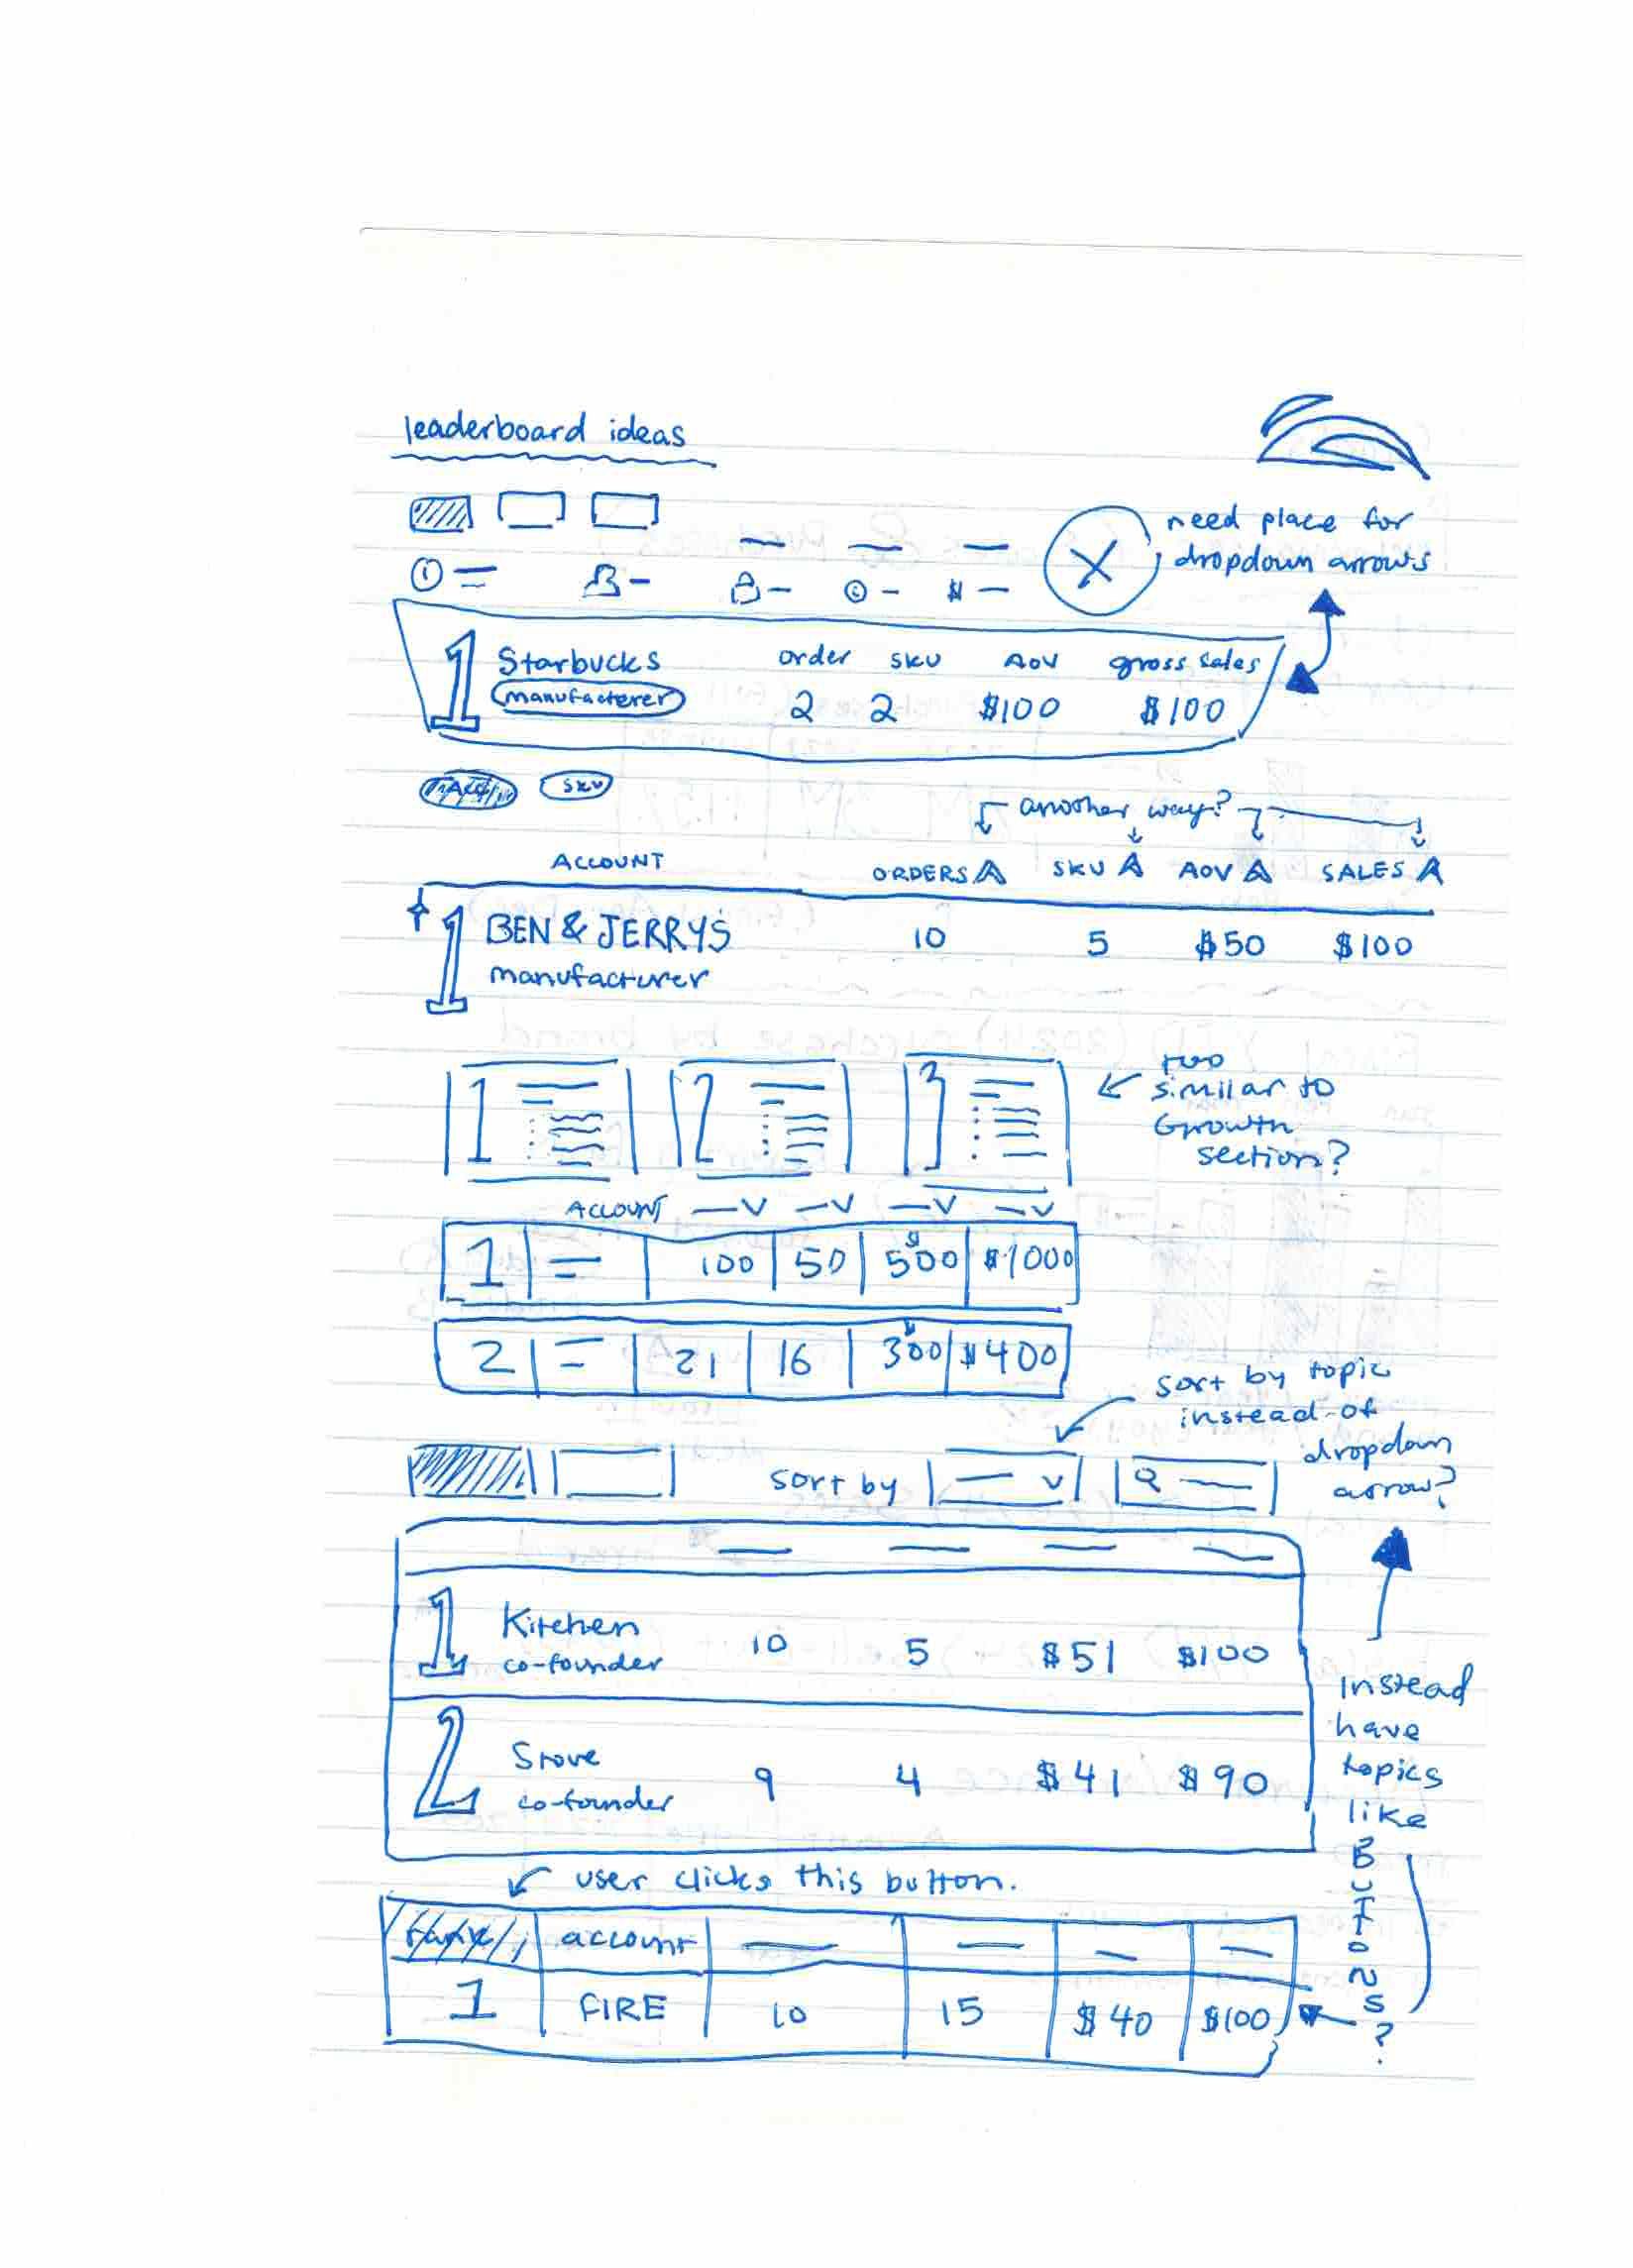 leaderboard ideas
need place for
dropdown arrows
X
1 Starbucks order SKU AOV gross sales
manufacterer 2 2 $100 $100
SKU
another way?
ACCOUNT ORDERS SKU AOV SALES
1 BEN & JERRYS 10 5 $50 $100
manufacturer
1 2 3
too
similar to
Growth
section?
ACCOUNT
1 100 50 $500 $1000
2 21 16 300 $400
sort by topic
instead of
dropdown
arrow?
sort by
1 Kitchen 10 5 $51 $100
co-founder
2 Stove 9 4 $41 $90
co-founder
instead
have
topics
like
BUTTONS?
user clicks this button.
rank account
1 FIRE 10 15 $40 $100